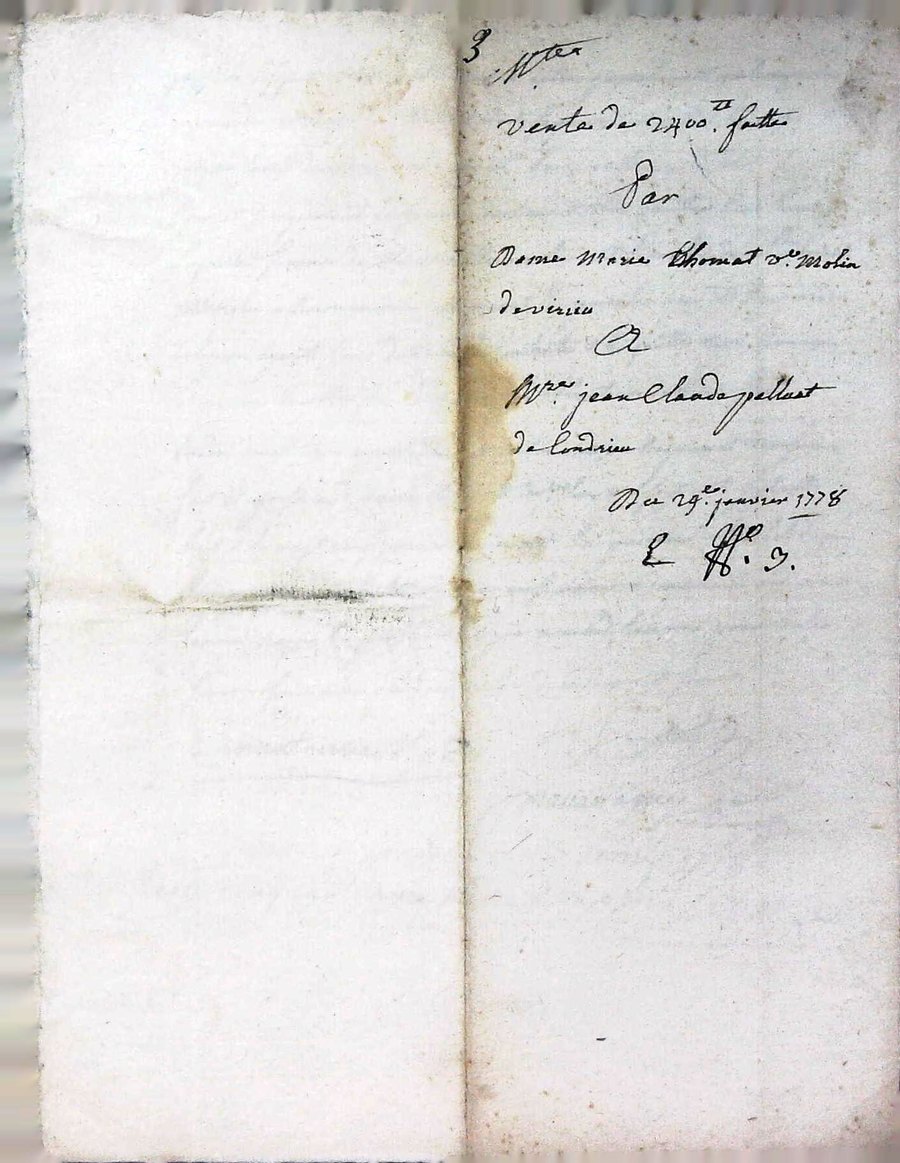 3
Mtes
vente de 2400.tt faitte
Par
Dame Marie Thomat ve. Molin
de virieu
A
Mre. jean Claude pelluat
de Condrieu
Du 29e. janvier 1778
E No. 3.